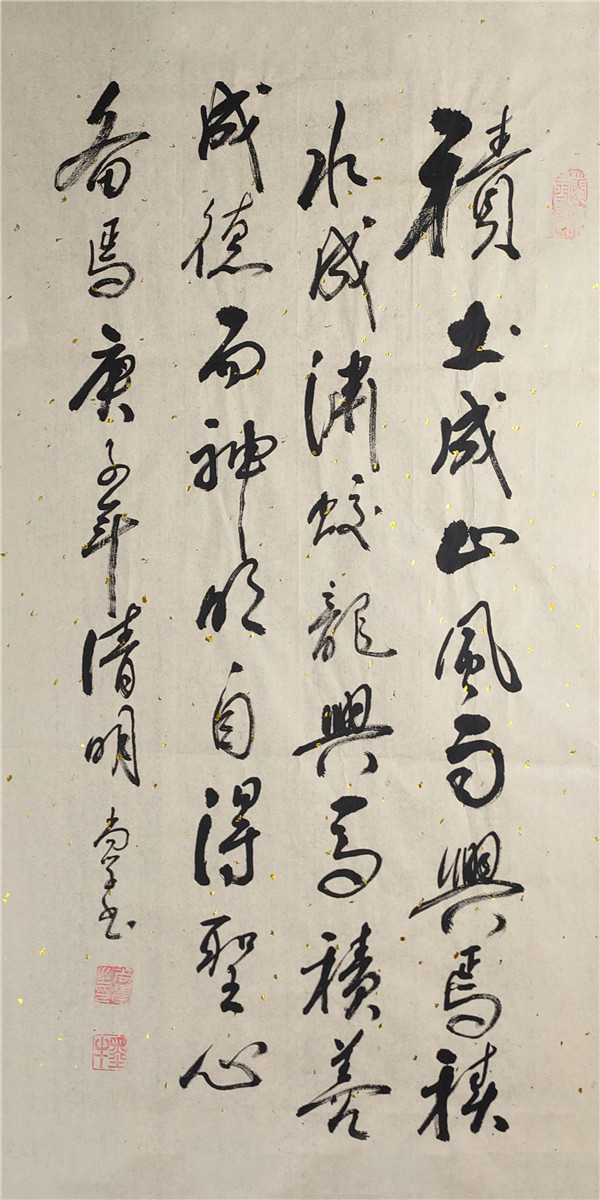 積土成山風雨興焉積
水成淵蛟龍興焉積善
成德而神明自得聖心
备焉庚子年清明
尚学书